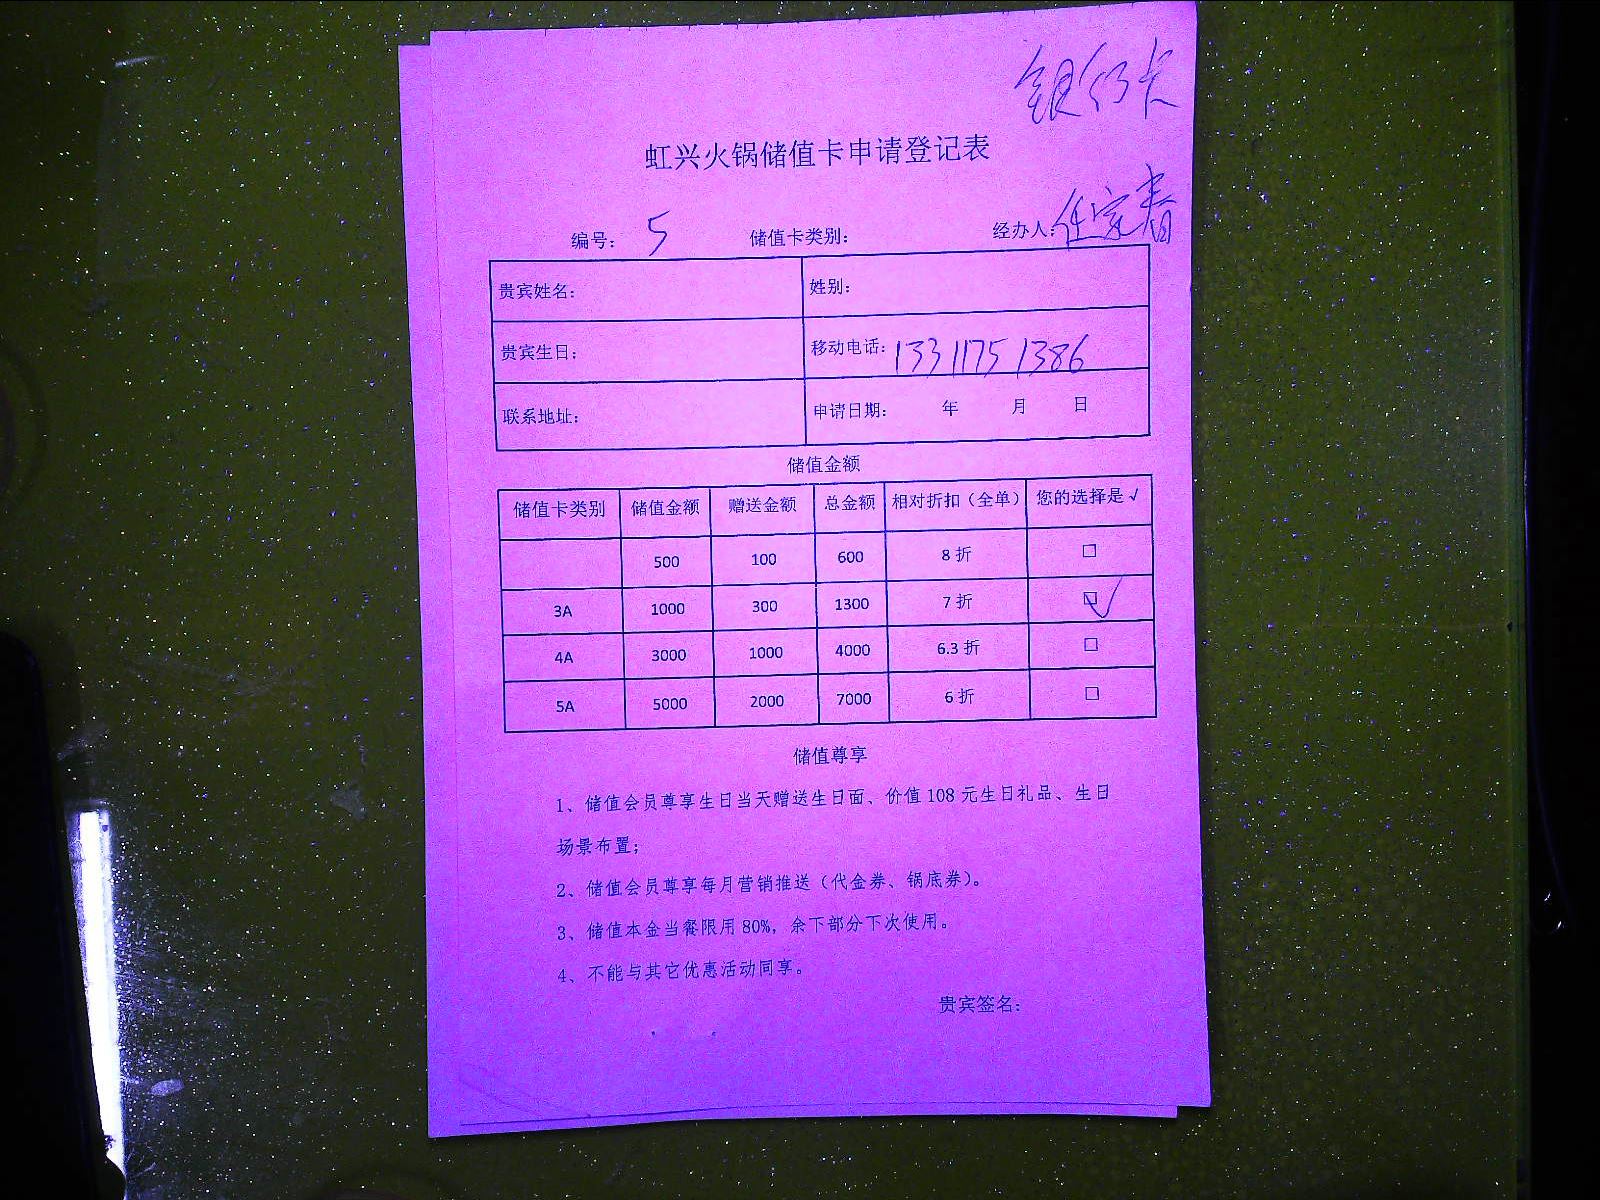 银行卡
虹兴火锅储值卡申请登记表
编号： 5 储值卡类别： 经办人：任宗春
贵宾姓名： 姓别：
贵宾生日： 移动电话：13311751386
联系地址： 申请日期： 年 月 日
储值金额
储值卡类别 储值金额 赠送金额 总金额 相对折扣（全单） 您的选择是√
500 100 600 8 折 □
3A 1000 300 1300 7 折 □√
4A 3000 1000 4000 6.3 折 □
5A 5000 2000 7000 6 折 □
储值尊享
1、储值会员尊享生日当天赠送生日面、价值 108 元生日礼品、生日
场景布置；
2、储值会员尊享每月营销推送（代金券、锅底券）。
3、储值本金当餐限用 80%，余下部分下次使用。
4、不能与其它优惠活动同享。
贵宾签名：